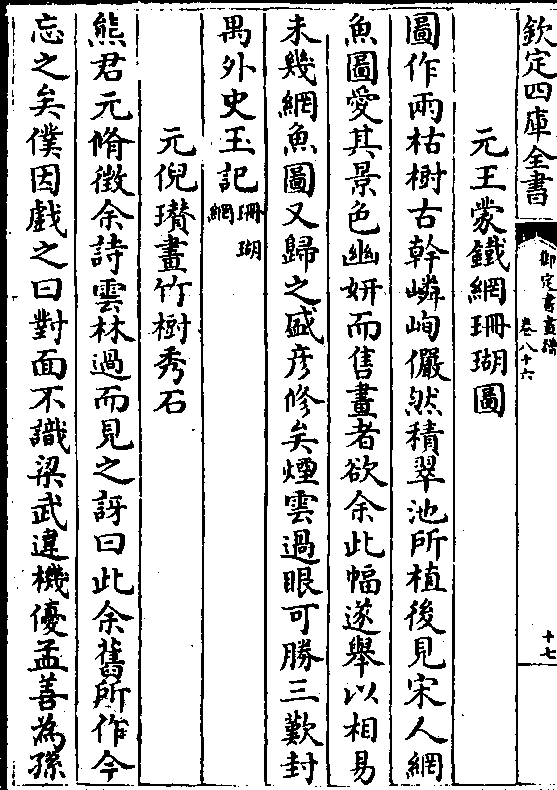 欽定四庫全書
御定書畫譜
卷八十六
十七
元王蒙鐵網珊瑚圖
圖作兩枯樹古幹嶙峋儼然積翠池所植後見宋人網
魚圖愛其景色幽妍而售畫者欲余此幅遂舉以相易
未幾網魚圖又歸之盛彦修矣煙雲過眼可勝三歎封
禺外史玉記
珊瑚
網
元倪瓚畫竹樹秀石
熊君元脩徵余詩雲林過而見之訝曰此余舊所作今
忘之矣僕因戲之曰對面不識梁武違機優孟善為孫